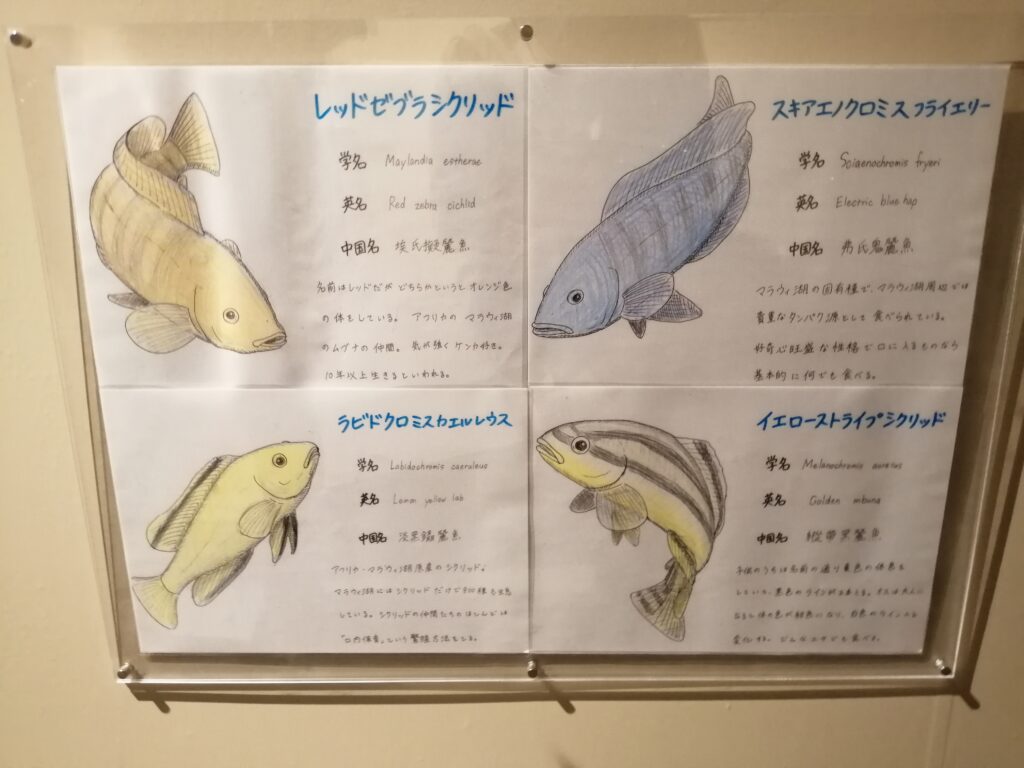 レッドゼブラシクリッド
学名 Maylandia estherae
英名 Red zebra cichlid
中国名 埃氏擬麗魚
名前はレッドだが どちらかというと オレンジ色
の体をしている。 アフリカの マラウィ湖
のムブナの仲間。 気が強く ケンカ好き。
10年以上生きるといわれる。
スキアエノクロミス フライエリー
学名 Sciaenochromis fryeri
英名 Electric blue hap
中国名 弗氏鬼麗魚
マラウィ湖の固有種で、マラウィ湖周辺では
貴重なタンパク源として 食べられている。
好奇心旺盛な性格で口に入るものなら
基本的に何でも食べる。
ラビドクロミスカエルレウス
学名 Labidochromis caeruleus
英名 Lemon yellow lab
中国名 淡黒鑷麗魚
アフリカ・マラウィ湖原産のシクリッド。
マラウィ湖にはシクリッドだけで800種も生息
している。シクリッドの仲間たちのほとんどは
"口内保育"という繁殖方法をとる。
イエローストライプシクリッド
学名 Melanochromis auratus
英名 Golden mbuna
中国名 縦帯黒麗魚
子供のうちは名前の通り黄色の体色を
していて、黒色のラインが2本入る。オスは大人に
なると体の色が紺色になり、白色のラインに
変化する。どんなエサでも食べる。